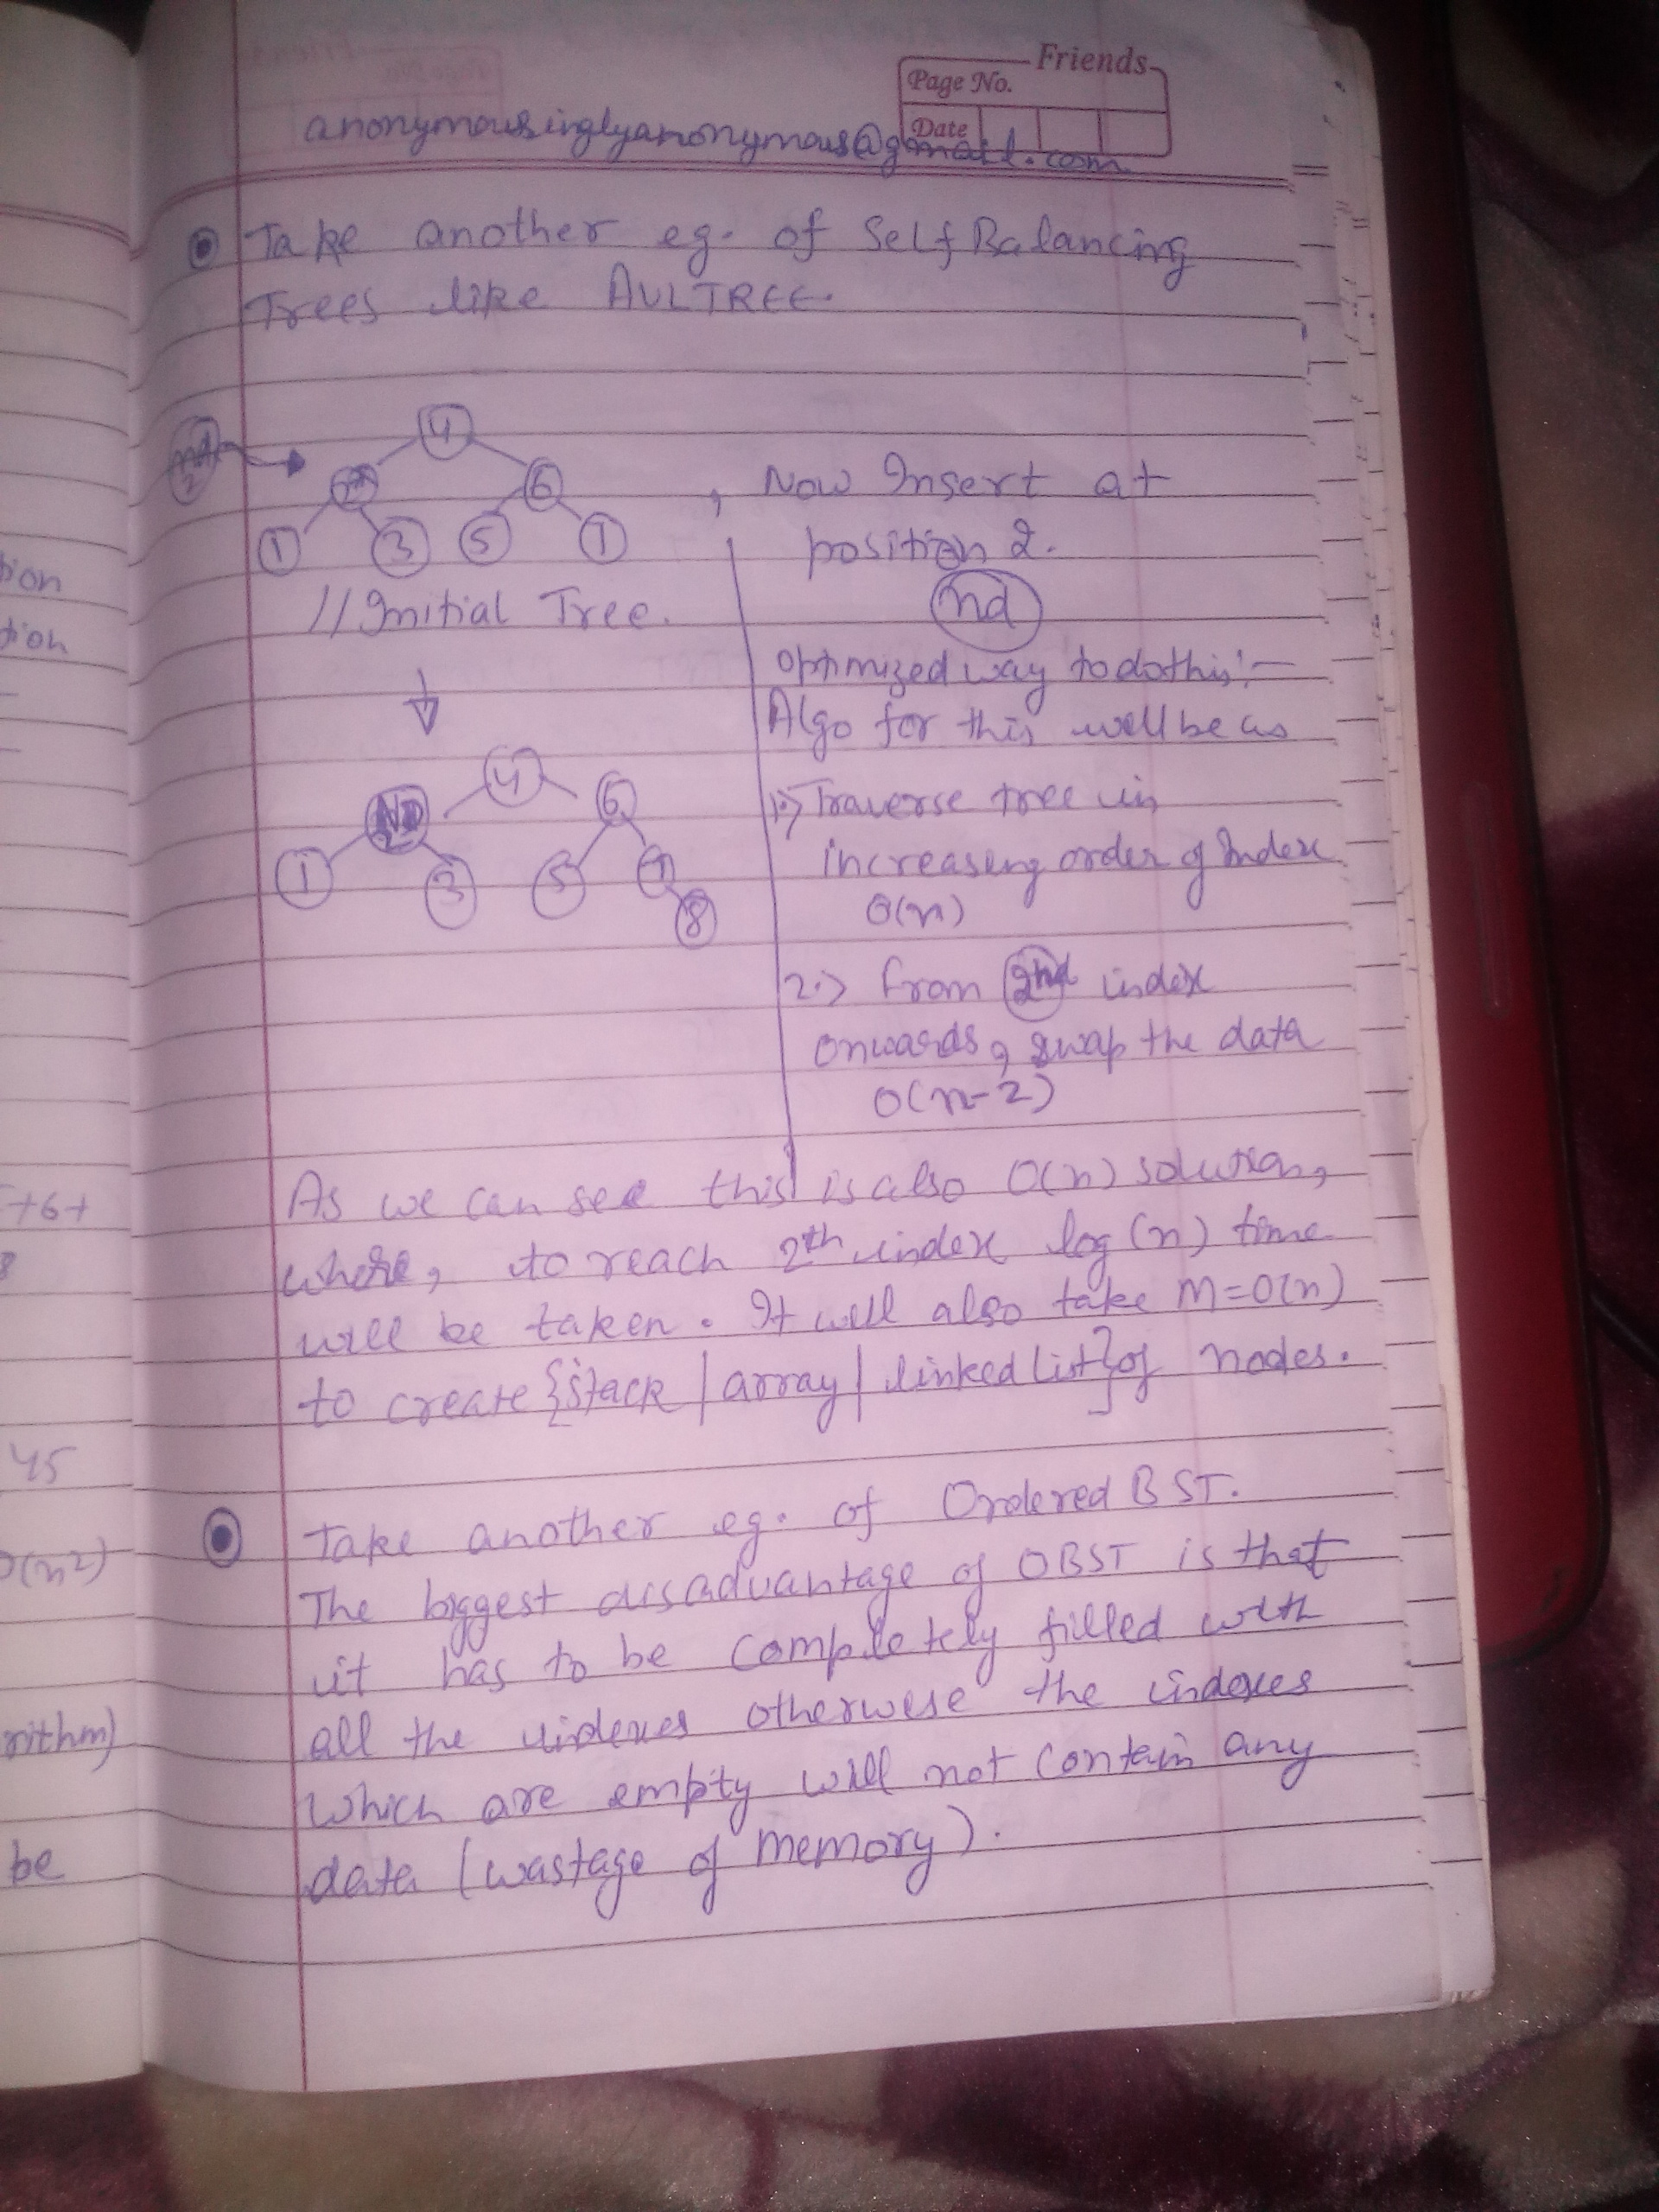 Friends
Page No.
Date
anonymousinglyanonymous@gmail.com
Take another eg. of Self Balancing
Trees like AVLTREE.
4
6
1 3 5
// Initial Tree.
, Now Insert at
position 2.
nd
optimized way to do this :-
Algo for this will be as
1.) Traverse tree in
increasing order of Index
O(n)
2.) from 2nd index
onwards, swap the data
O(n-2)
4
ND 2
6
1 3 5 7
8
As we can see this is also O(n) solution,
where, to reach 2th index log(n) time
will be taken. It will also take M=O(n)
to create {stack | array | linked list} of nodes.
Take another eg. of Ordered BST.
The biggest disadvantage of OBST is that
it has to be completely filled with
all the indexes otherwise the indexes
which are empty will not contain any
data (wastage of memory).
tion
tion
+6+
8
45
O(n2)
rithm)
be